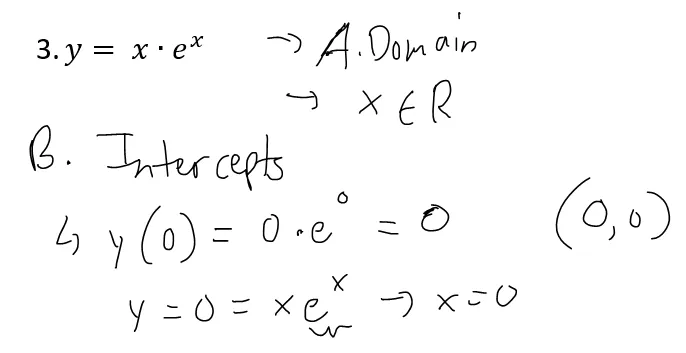 3. y = x · eˣ → A. Domain
→ x ∈ R
B. Intercepts
↳ y(0) = 0 · e⁰ = 0 (0,0)
y = 0 = xeˣ → x = 0